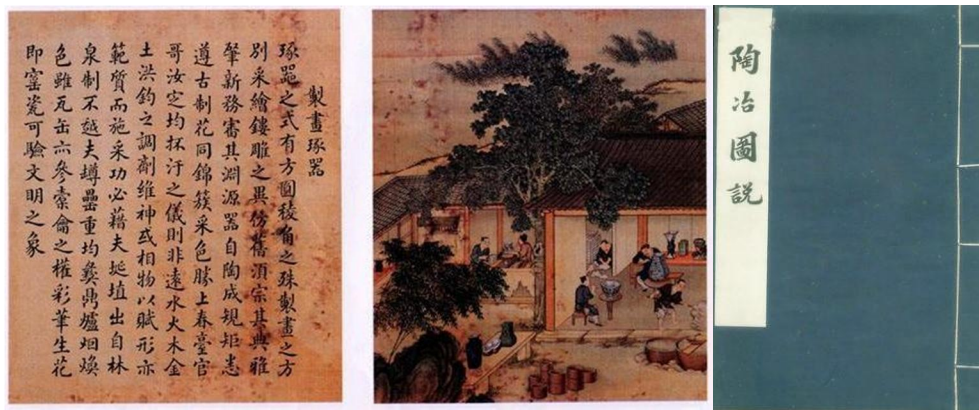 製畫琢器
琢器之式有方圓稜角之殊製畫之方
別采繪鏤雕之異仿舊須宗其典雅
肇新務審其淵源器自陶成規矩悉
遵古制花同錦簇采色勝上春臺官
哥汝定均抔汙之儀則非遠水火木金
土洪鈞之調劑維神或相物以賦形亦
範質而施采功必藉夫埏埴出自林
泉制不越夫罇罍重均彝鼎爐烟煥
色雖瓦缶亦參橐龠之權彩筆生花
即窑瓷可驗文明之象
陶冶圖説